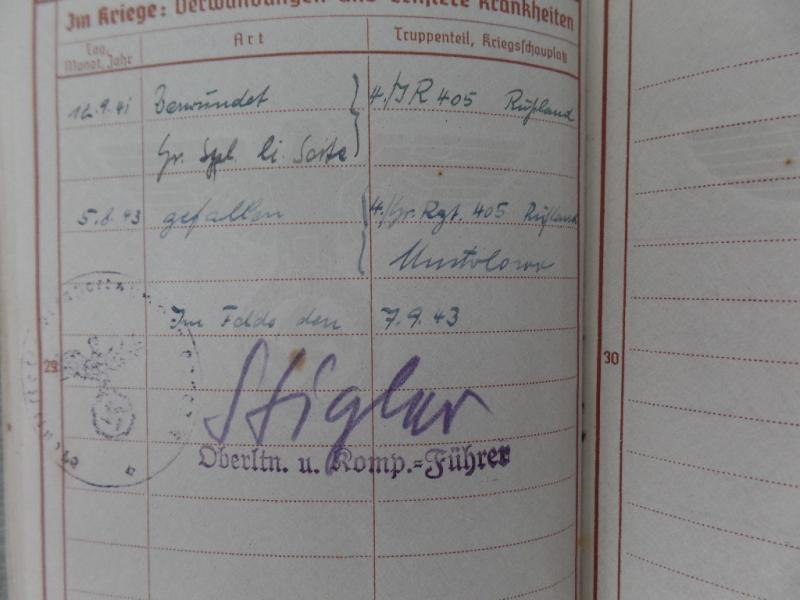 Im Kriege: Verwundungen und ernstere Krankheiten
Tag, Monat, Jahr
Art
Truppenteil, Kriegsschauplatz
12.9.41 Verwundet 4./IR 405 Rußland
Gr. Spl. li. Seite
5.8.43 gefallen 4./Gr. Rgt. 405 Rußland
Mustolowo
Im Felde den 7.9.43
29
30
Stigler
Oberltn. u. Komp.-Führer